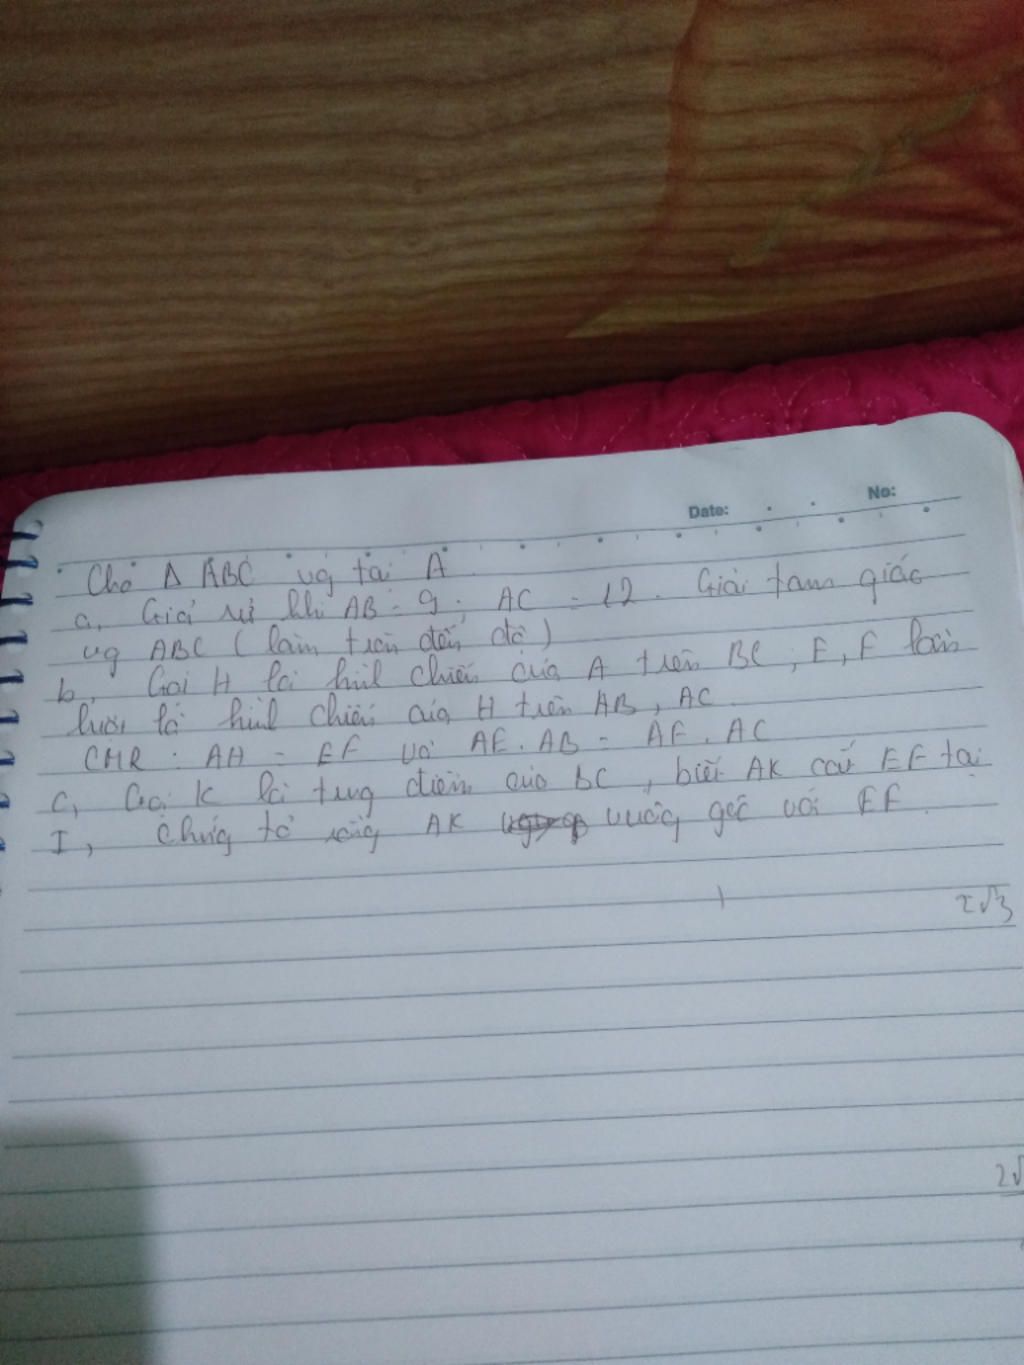 Date: No:
Cho Δ ABC vg tại A
a, Giả sử khi AB = 9; AC = 12. Giải tam giác
vg ABC (làm tròn đến độ)
b, Gọi H là hình chiếu của A trên BC, E, F lần
lượt là hình chiếu của H trên AB, AC.
CMR: AH = EF và AE.AB = AF.AC
c, Gọi K là trung điểm của BC, biết AK cắt EF tại
I, chứng tỏ rằng AK vuông góc với EF.
2√3
2√